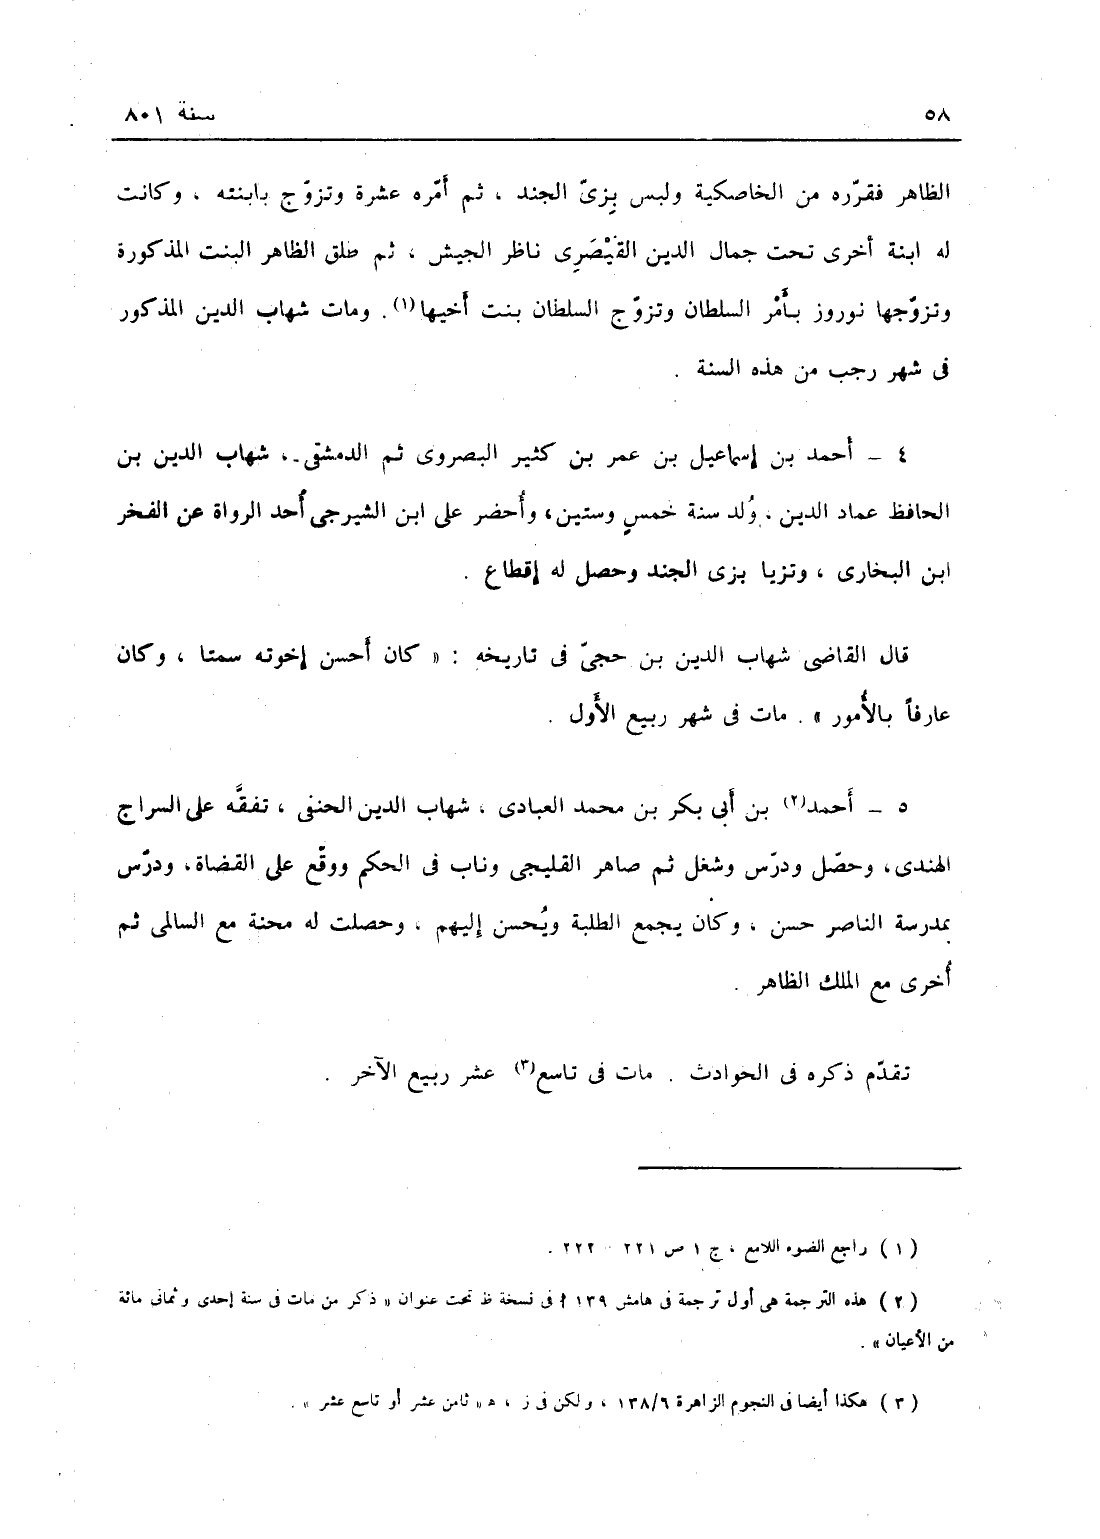 ٥٨
سنة ٨٠١
الظاهر فقرّره من الخاصكية ولبس بِزىّ الجند ، ثم أَمّره عشرة وتزوّج بابنته ، وكانت
له ابنة أخرى تحت جمال الدين القَيْصَرِى ناظر الجيش ، ثم طلق الظاهر البنت المذكورة
وتزوّجها نوروز بأَمْر السلطان وتزوّج السلطان بنت أَخيها(١). ومات شهاب الدين المذكور
فى شهر رجب من هذه السنة .
٤ – أَحمد بن إسماعيل بن عمر بن كثير البصروى ثم الدمشقى ، شهاب الدين بن
الحافظ عماد الدين ، وُلد سنة خمسٍ وستين، وأُحضر على ابن الشيرجى أَحد الرواة عن الفخر
ابن البخارى ، وتزيا بزى الجند وحصل له إقطاع .
قال القاضى شهاب الدين بن حجىّ فى تاريخه : « كان أَحسن إخوته سمتا ، وكان
عارفاً بالأُمور » . مات فى شهر ربيع الأَول .
٥ – أَحمد(٢) بن أَبى بكر بن محمد العبادى ، شهاب الدين الحنفى ، تفقَّه على السراج
الهندى، وحصّل ودرّس وشغل ثم صاهر القليجى وناب فى الحكم ووقّع على القضاة، ودرّس
بمدرسة الناصر حسن ، وكان يجمع الطلبة ويُحسن إليهم ، وحصلت له محنة مع السالمى ثم
أُخرى مع الملك الظاهر .
تقدّم ذكره فى الحوادث . مات فى تاسع(٣) عشر ربيع الآخر .
(١) راجع الضوء اللامع ، ج ١ ص ٢٢١ – ٢٢٢ .
(٢) هذه الترجمة هى أول ترجمة فى هامش ١٣٩ أ فى نسخة ظ تحت عنوان « ذكر من مات فى سنة إحدى وثمانى مائة
من الأعيان » .
(٣) هكذا أيضا فى النجوم الزاهرة ١٣٨/٦ ، ولكن فى ز ، ه « ثامن عشر أو تاسع عشر » .